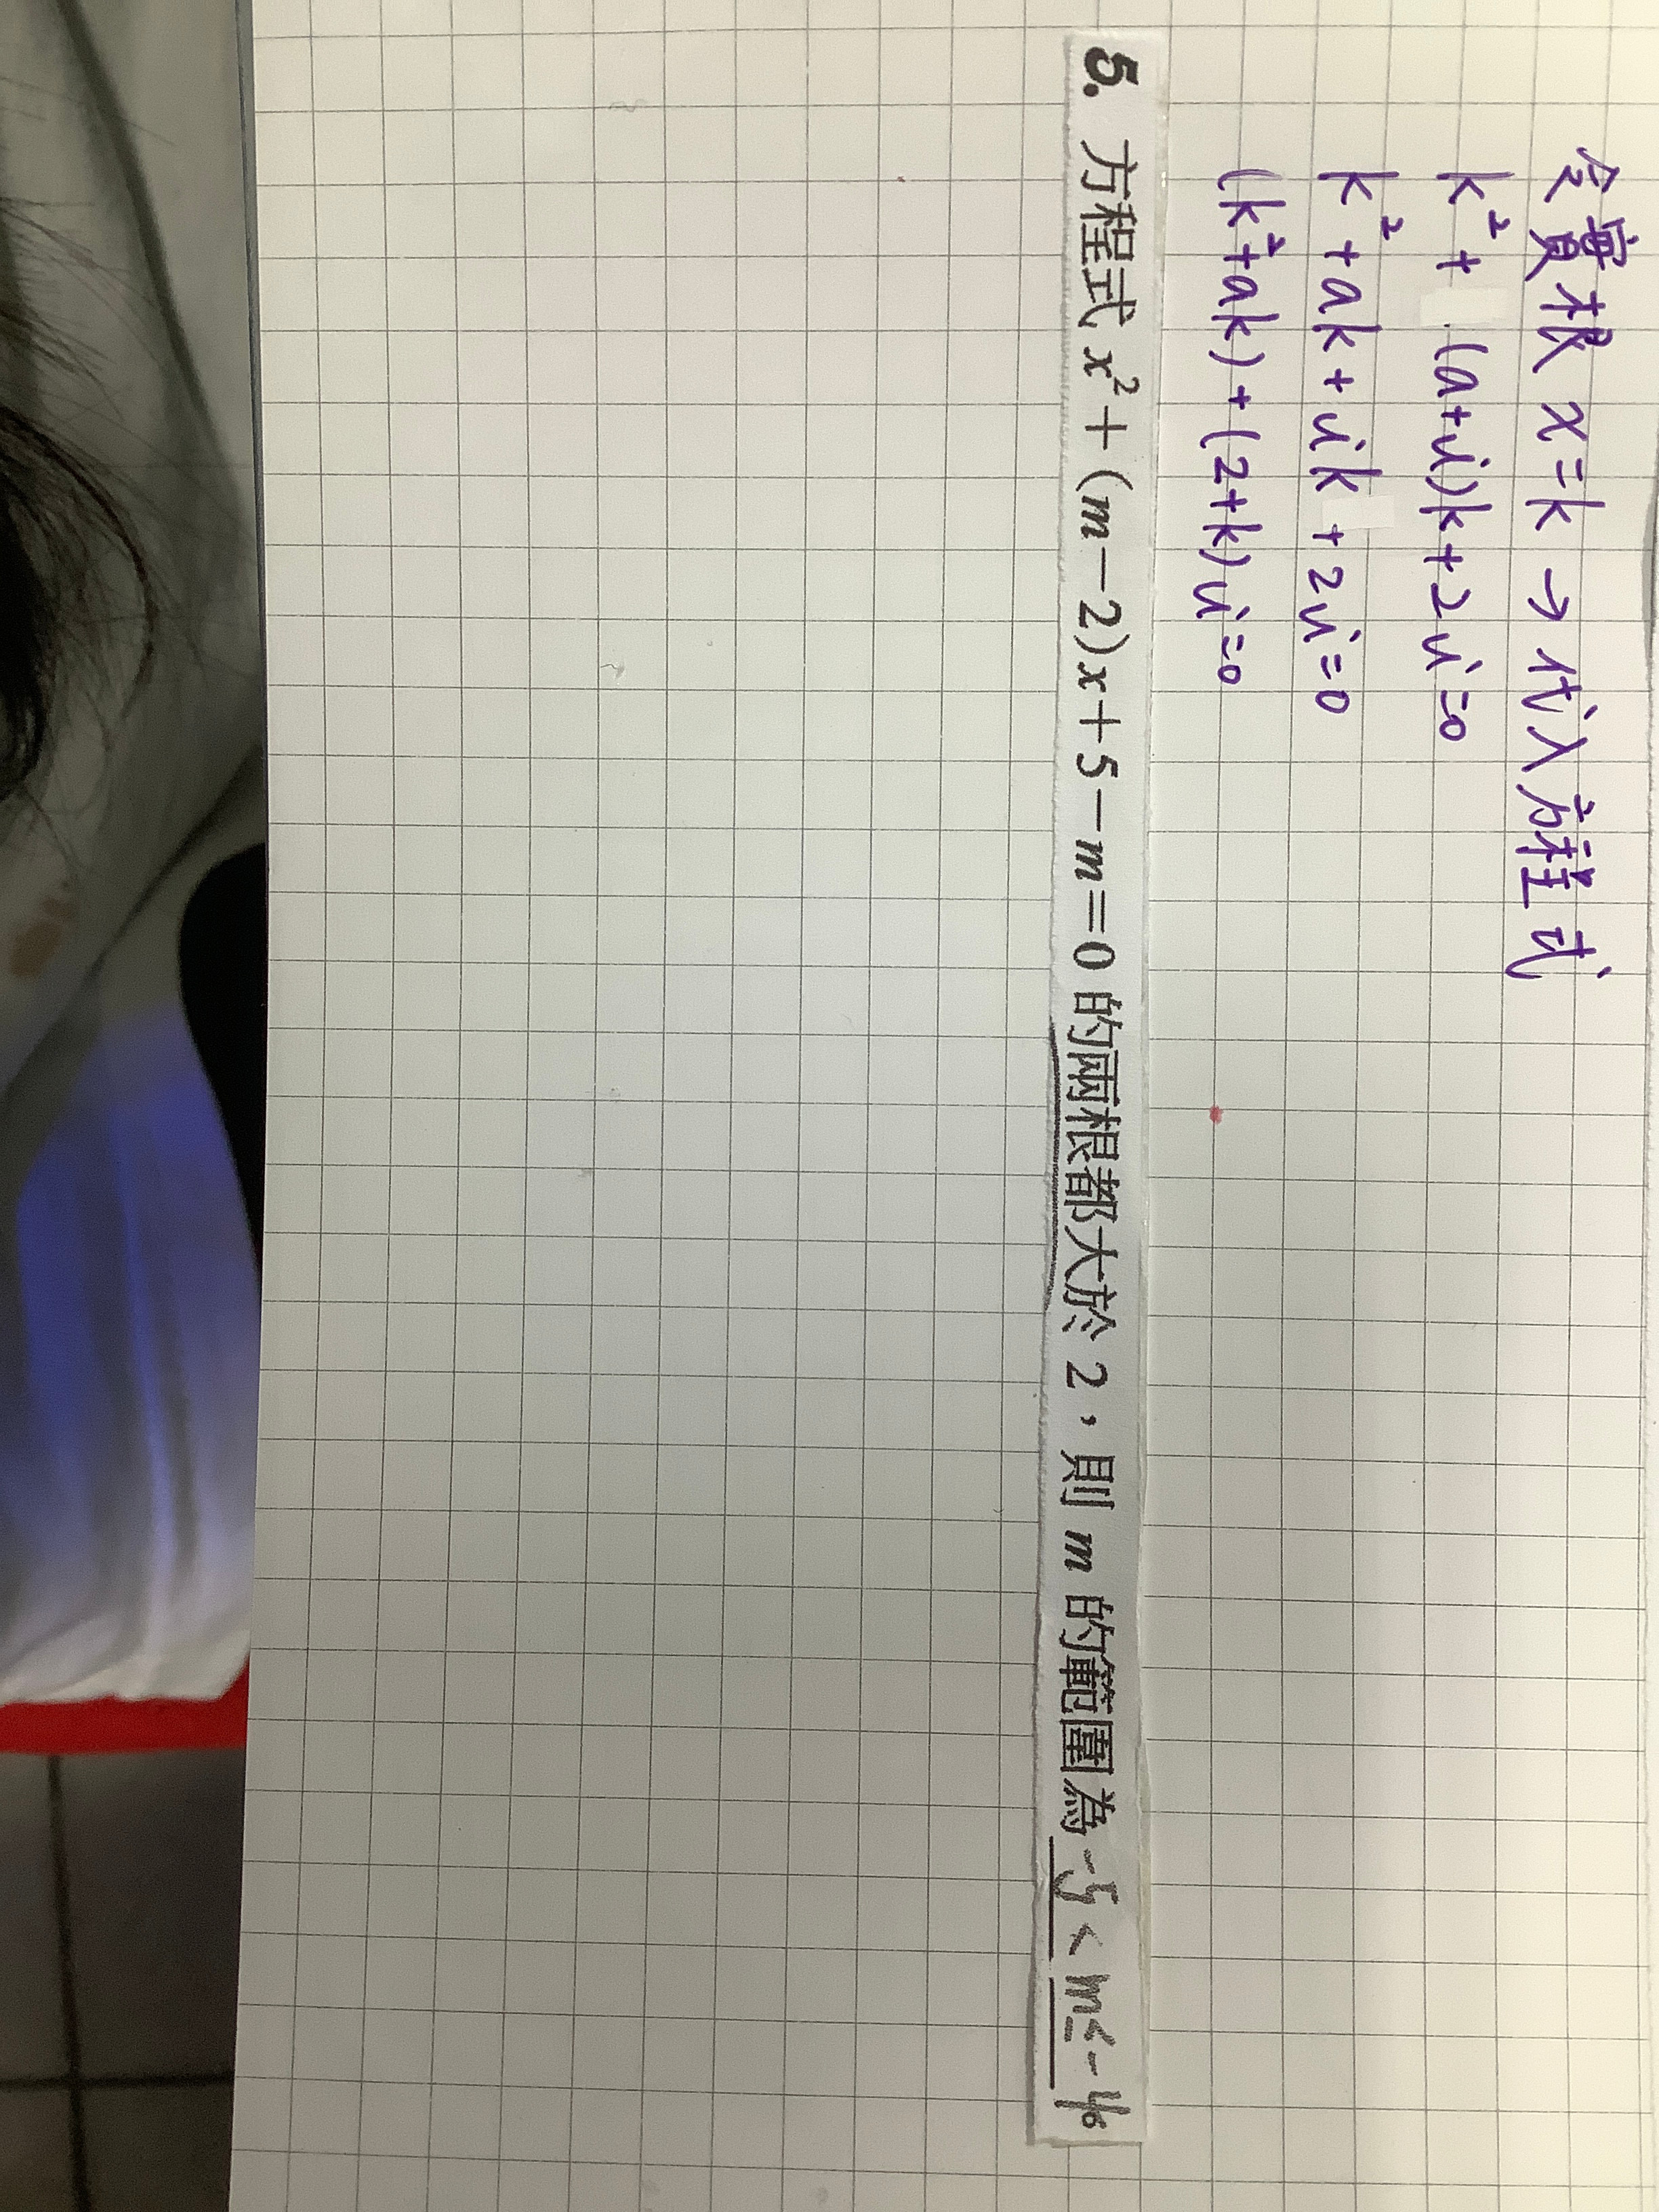 令實根 x=k → 代入方程式
k²+ (a+i)k+2i=0
k²+ak+ik+2i=0
(k²+ak)+(2+k)i=0
5. 方程式 x²+(m−2)x+5−m=0 的兩根都大於 2，則 m 的範圍為 -5<m≤-4。